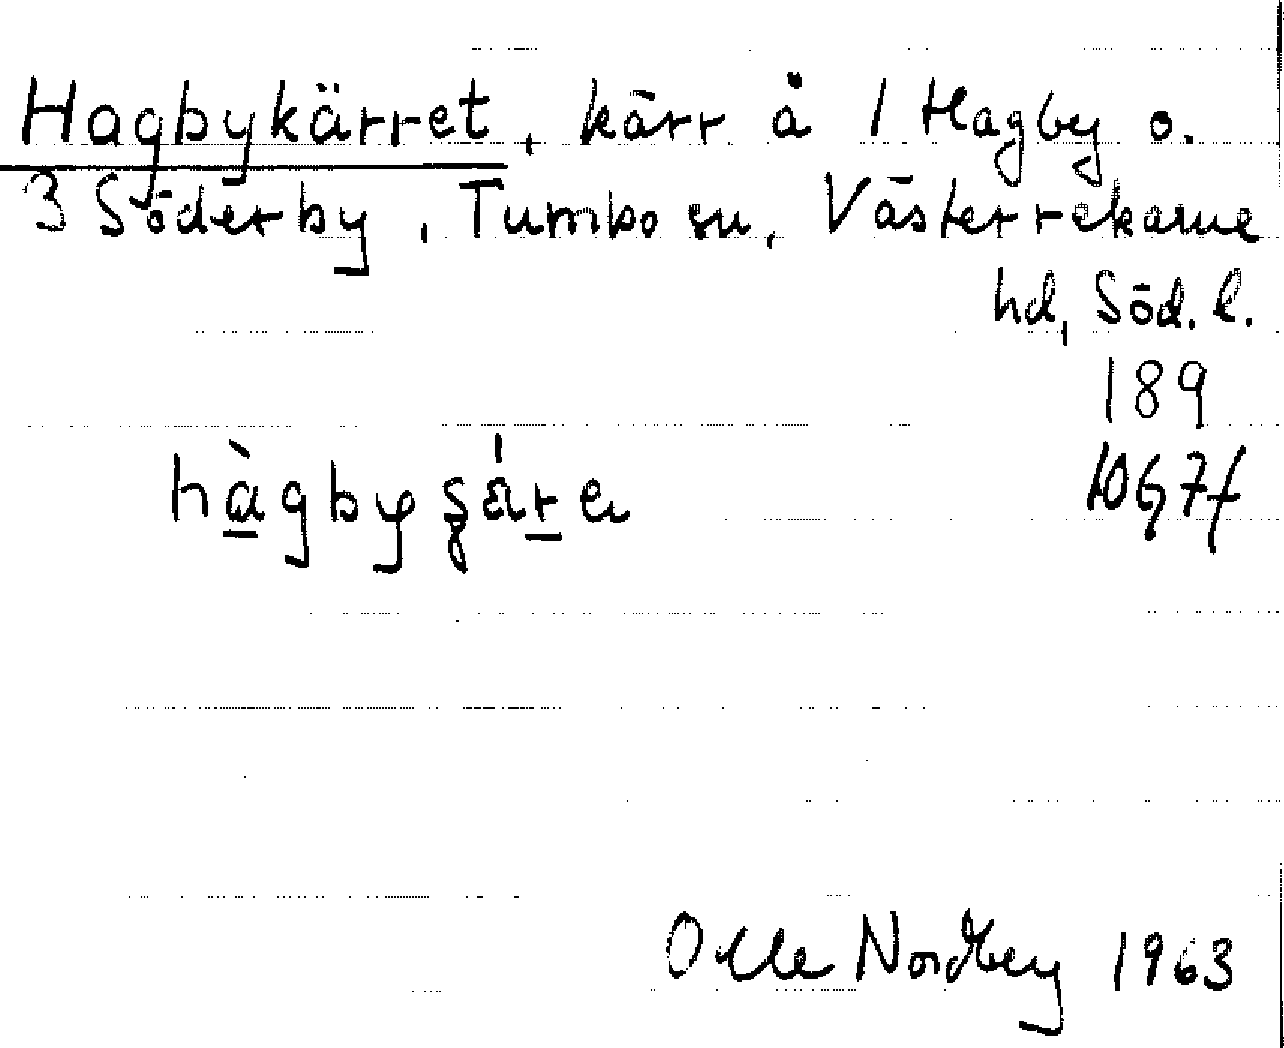 Hagbykärret, kärr å 1 Hagby o.
3 Söderby, Tumbo sn, Västerrekarne
hd, Söd. l.
189
10G7f
Olle Nordberg 1963